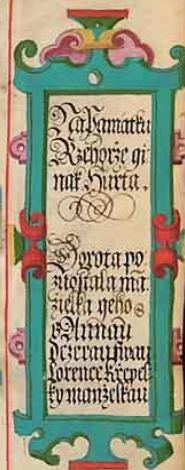 Na Pamatku
Rzehorže gi
nak Hurta.
Dorota po
zustala ma
zielka geho
s Annau
dczerau swau
Lorence Krzepel
ky manzelkau